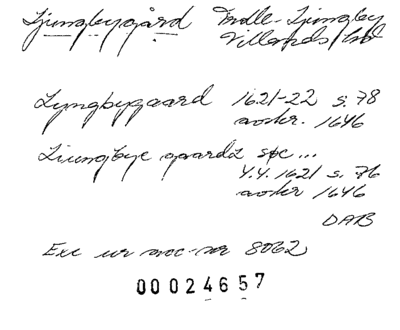 Ljungbygård Trolle-Ljungby
Villands hd
Lyngbygaard 1621-22 s. 78
avskr. 1646
Liungbye gaardz spc...
4.4. 1621 s. 76
avskr 1646
DAB
Exc ur acc-nr 8062
00024657